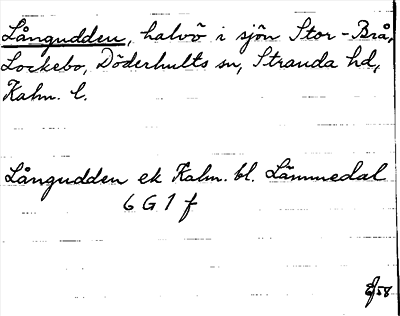 Långudden, halvö i sjön Stor-Brå,
Lockebo, Döderhults sn, Stranda hd,
Kalm. l.
Långudden ek Kalm. bl. Lämmedal
6 G 1 f